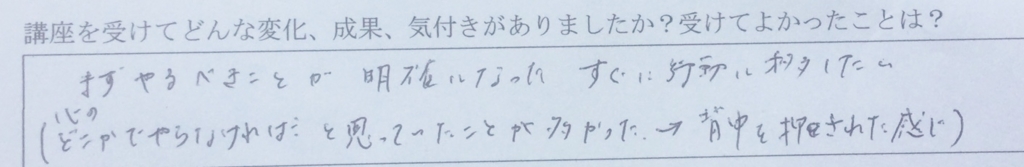 講座を受けてどんな変化、成果、気付きがありましたか？受けてよかったことは？
まずやるべきことが 明確になった すぐに行動に移したい
心の
(どこかでやらなければ… と思っていたことが多かった → 背中を押された感じ)